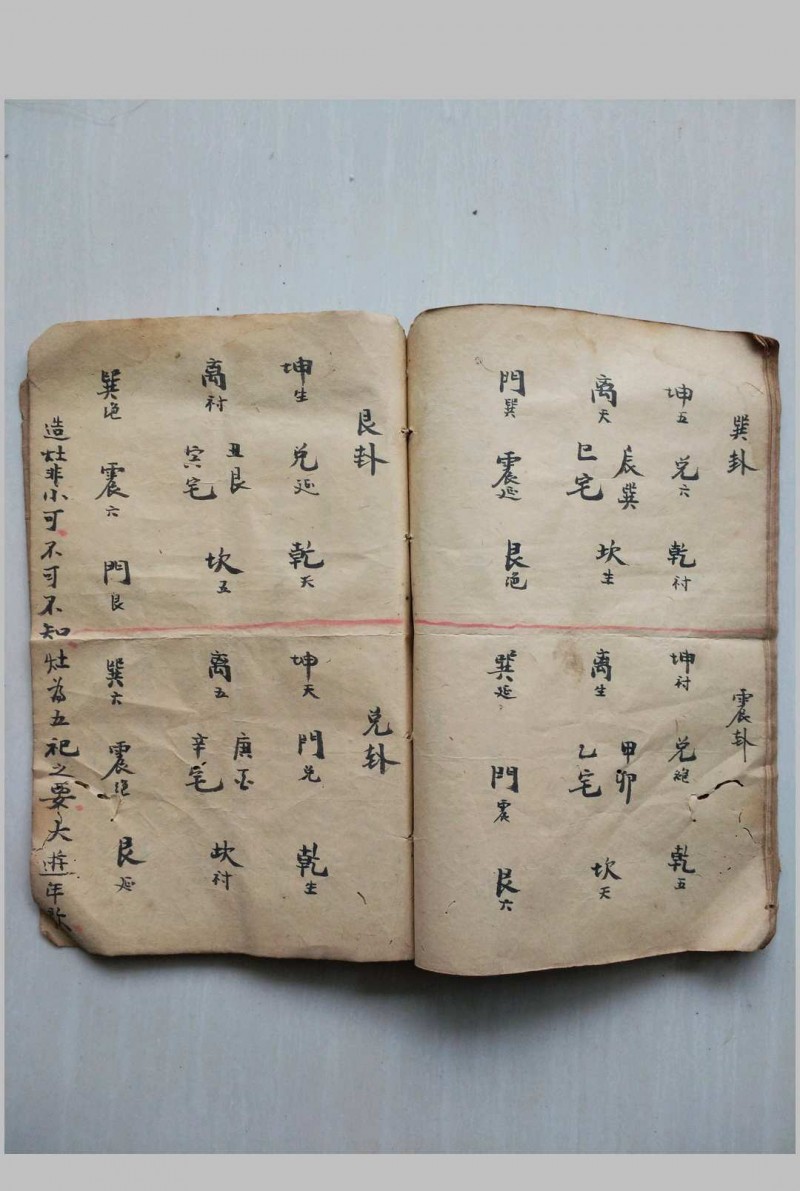 巽卦
坤五 兑六 乾衬
离天 辰巽巳宅 坎生
門巽 震延 艮绝
震卦
坤衬 兑絕 乾五
离生 甲卯乙宅 坎天
巽延 門震 艮六
艮卦
坤生 兑延 乾天
离衬 丑艮寅宅 坎五
巽绝 震六 門艮
兑卦
坤天 門兑 乾生
离五 庚酉辛宅 坎衬
巽六 震绝 艮延
造灶非小可不可不知灶為五祀之要大遊年歌